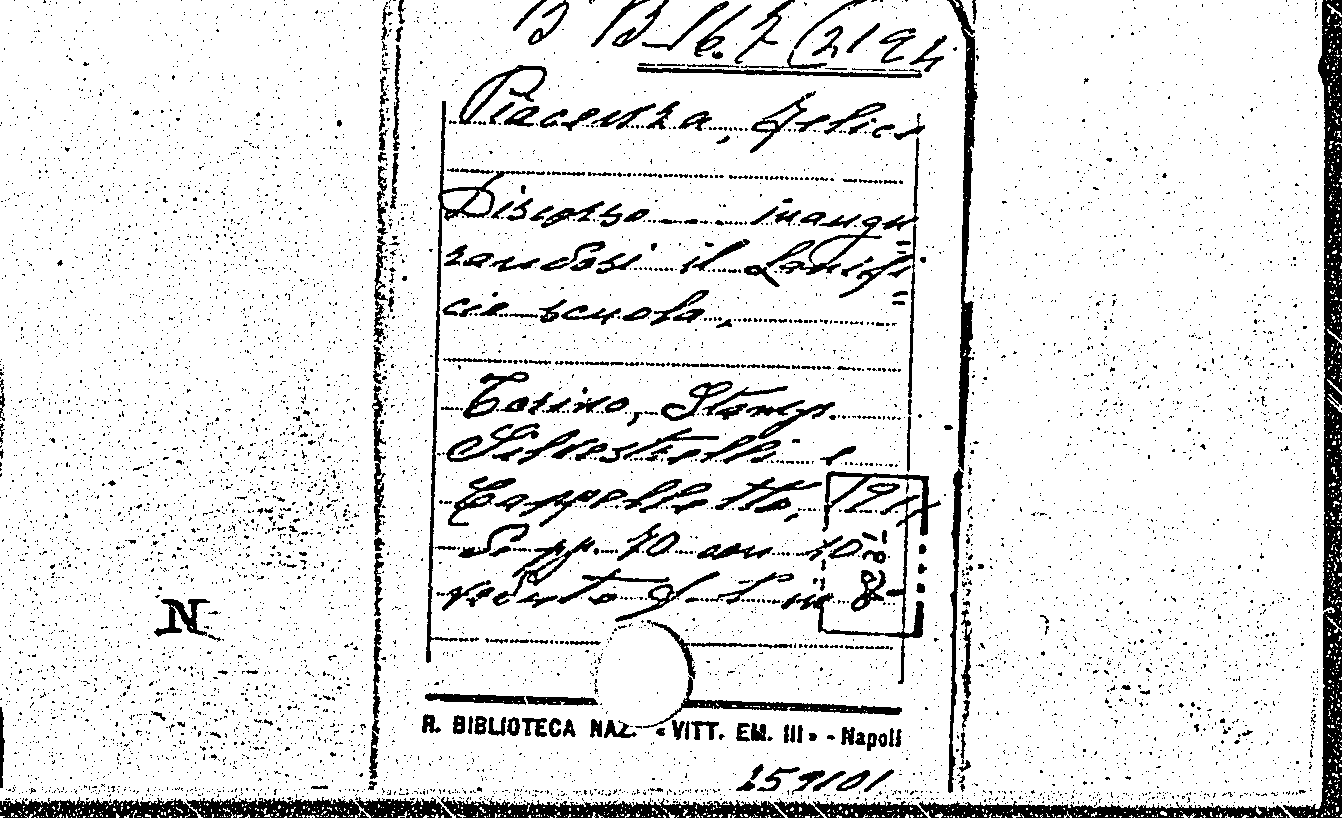 B B-16.7 (2194
Piacenza, Felice
Discorso ... inaugu
randosi il Lanifi=
cio scuola.
Torino, Stamp.
Silvestrelli e
Cappelletto, 1911
8° pp. 70 con 10
8831-
R. BIBLIOTECA NAZ. «VITT. EM. III» - Napoli
259101
N